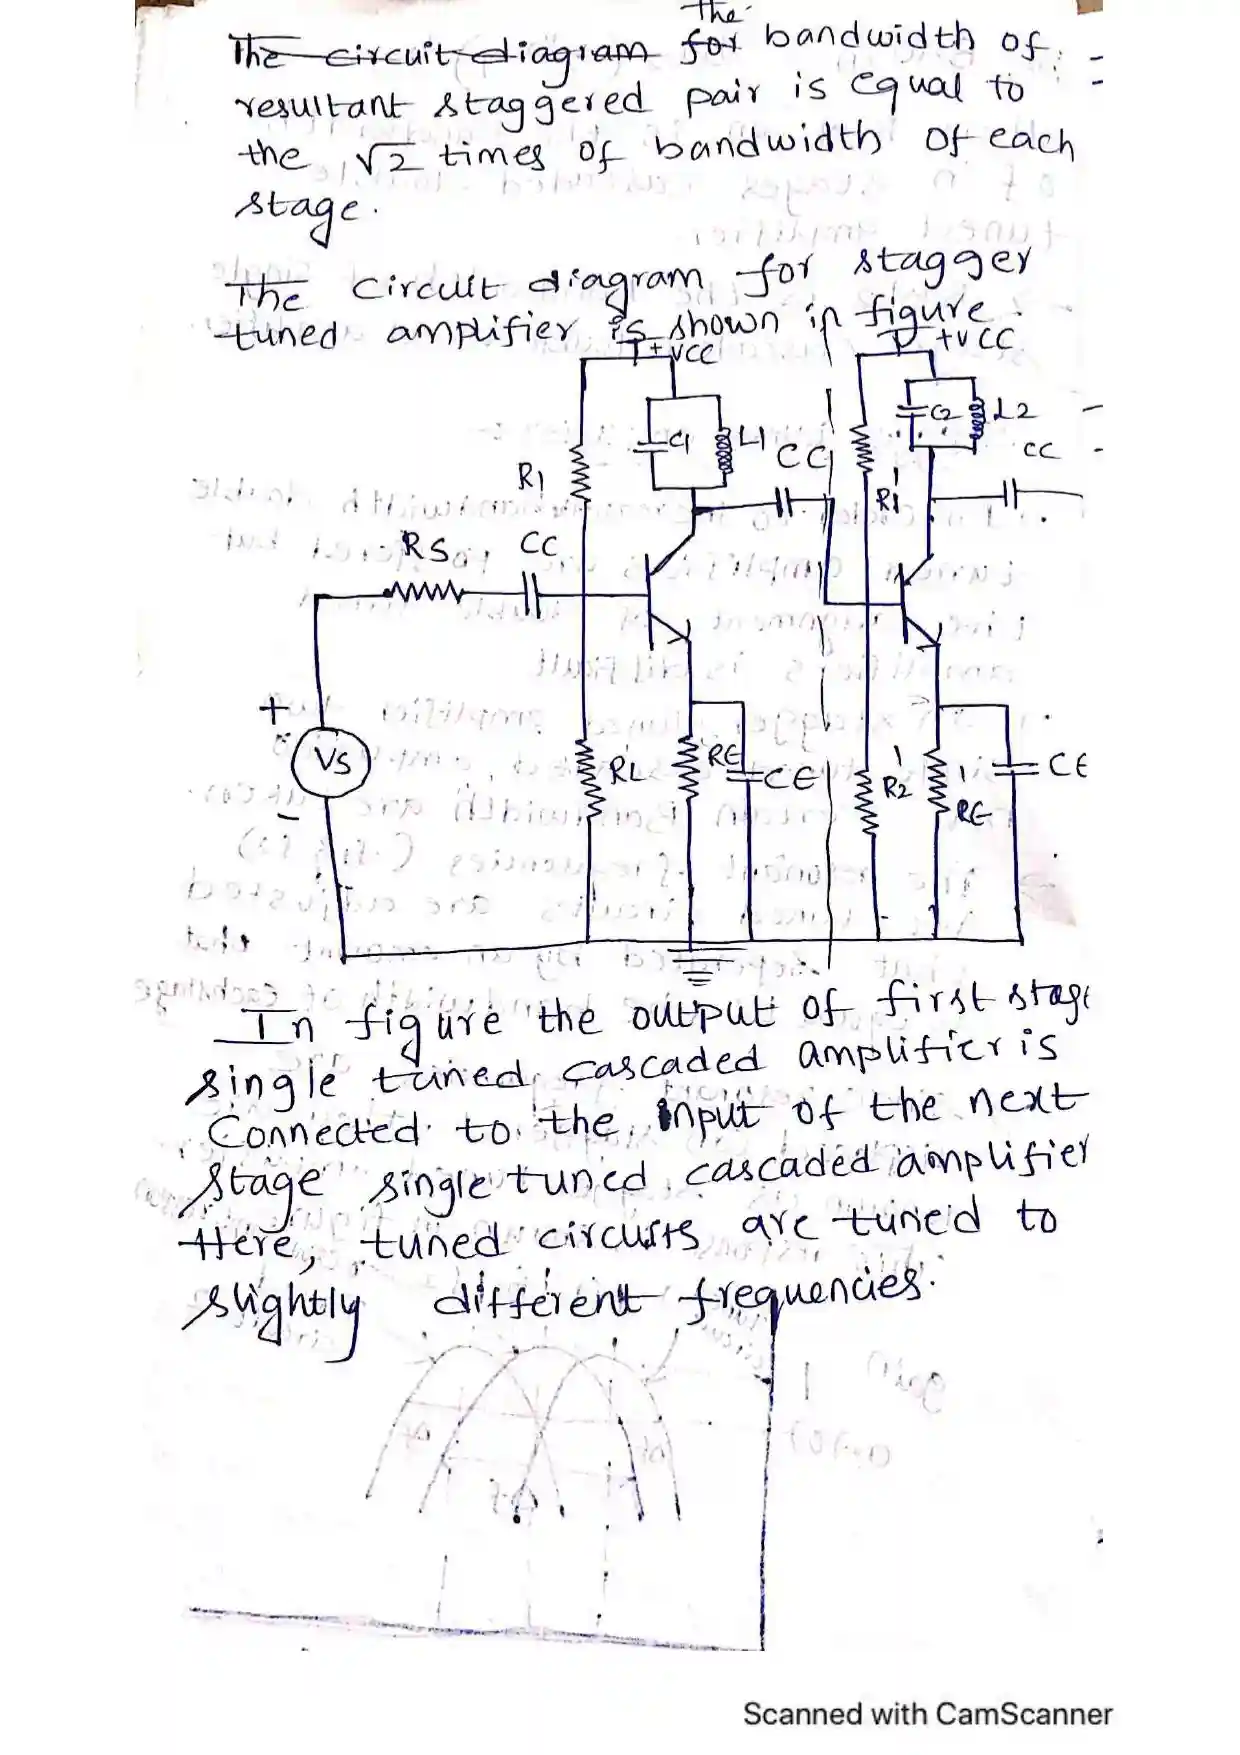 the
The circuit diagram for bandwidth of
resultant staggered pair is equal to
the √2 times of bandwidth of each
stage.
The circuit diagram for stagger
tuned amplifier is shown in figure.
+VCC
+VCC
C1
L1
C2
L2
CC
CC
R1
R1'
RS
CC
+
VS
-
RL
RE
CE
R2'
RE'
CE
In figure the output of first stage
single tuned cascaded amplifier is
Connected to the input of the next
stage single tuned cascaded amplifier
Here, tuned circuits are tuned to
slightly different frequencies.
Scanned with CamScanner